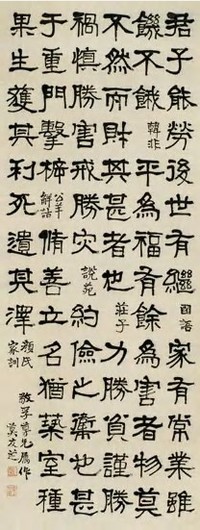 君子能勞後世有繼 國語 家有常業雖
饑不餓 韓非 平為福有餘為害者物莫
不然而財其甚者也 莊子 力勝貧謹勝
禍慎勝害戒勝災 說苑 約儉之衛也甚
于重門擊柝 公羊解詁 脩善立名猶築室種
果生獲其利死遺其澤 顏氏家訓 敬孚尊兄屬作
莫友芝